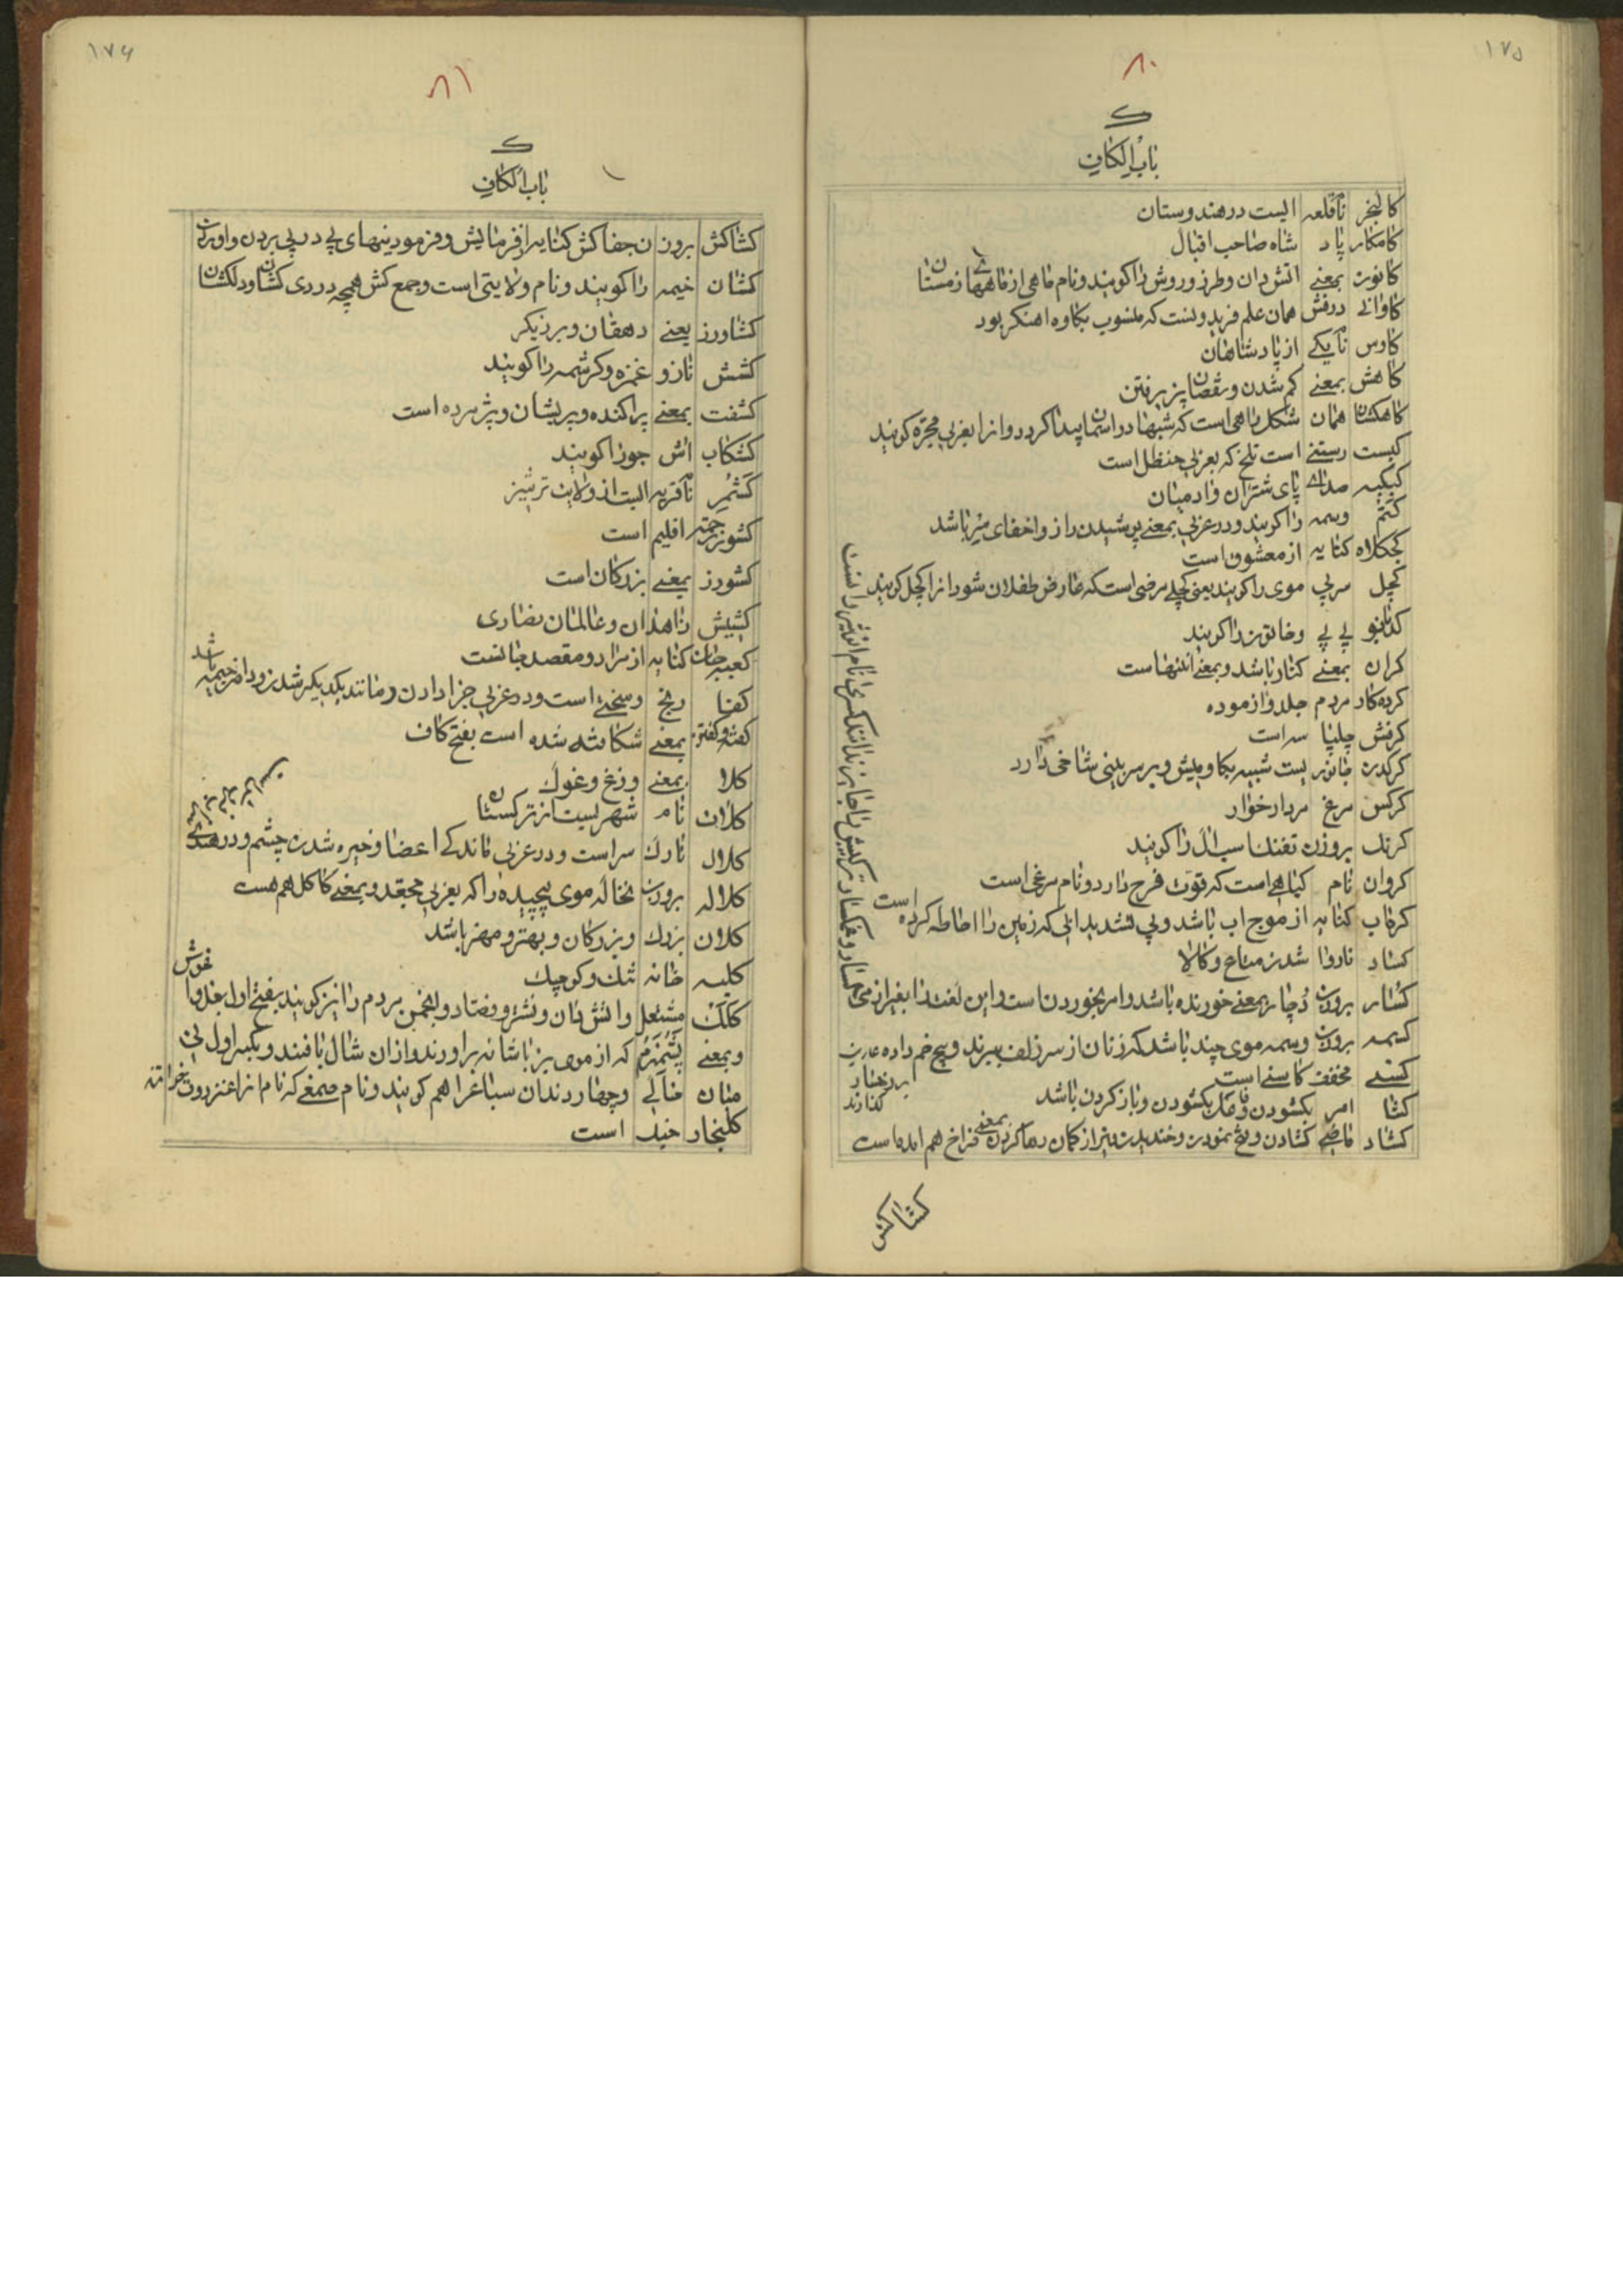 ١٧٥
٨٠
ک
باب الکاف
کالنجر نام قلعه ایست در هندوستان
کامکار پاد شاه صاحب اقبال
کانون بمعنی اتش دان و طرز و روش را کویند و نام ماهی از ماههای زمستان
کاوانی درفش همان علم فریدونست که منسوب بکاوه اهنکر بود
کاوس نام یکی از پادشاهان
کاهش بمعنی کم شدن و نقصان پزیرفتن
کاهکشان همان شکل راهی است که شبها در اسمان پیدا کردد و انرا بعربی مجره کویند
کبست رستنی است تلخ که بعربی حنظل است
کبکبه صدای پای شتران و ادمیان
کتم وسمه را کویند و در عربی بمعنی پوشیدن راز و اخفای سر باشد
کجکلاه کنایه از معشوق است
کچل سر بی موی را کویند یعنی کچلی مرضی است که عارض طفلان شود انرا کچل کویند
کدبانو بی بی و خاتون را کویند
کران بمعنی کنار باشد و بمعنی انتها است
کرده کار مردم جلد و ازموده
کرفش چلپا سه است
کرکدن جانور یست شبیه بکاومیش و بر سر بینی شاخی دارد
کرکس مرغ مردار خوار
کرنک بروزن تفنک اسب ال را کویند
کروان نام کیاهی است که قوت فرح دارد و نام مرغی است
کرماب کنایه از موج اب باشد و بی تشدید ابی که زمین را احاطه کرده است
کساد ناروا شدن متاع و کالا
کسار بروزن دچار بمعنی خورنده باشد و امر بخوردن است و این لغت را بغیر از می
کسمه بروزن وسمه موی چند باشد که زنان از سر زلف ببرند و پیچ خم داده
بر رخسار
کذارند
کسنی مخفف کاسنی است
کشا امر بکشودن و فاعل بکشودن و باز کردن باشد
کشاد ماضی کشادن و فتح نمودن و خندیدن و تیر از کمان رها کردن بمعنی فراخ هم امده است
کشاکش
١٧٦
٨١
ک
باب الکاف
کشاکش بروزن جفاکش کنایه از فرمایش و فرمودینهای پی در پی بردن و اوردن
کشان خیمه را کویند و نام ولایتی است و جمع کش همچه دردی کشان و دلکشان
کشاورز یعنی دهقان و برزیکر
کشش ناز و غمزه و کرشمه را کویند
کشفت بمعنی پراکنده و پریشان و پژمرده است
کشکاب اش جو را کویند
کشمر نام قریه ایست از ولایت ترشیز
کشور ترجمه اقلیم است
کشورز بمعنی بزرکان است
کشیش زاهدان و عالمان نصاری
کعبه جان کنایه از مراد و مقصد جانست
کفا رنج و سختی است و در عربی جزا دادن و مانند یکدیکر شدن و دامن خیمه باشد
کفته و کفتن بمعنی شکافته شده است بفتح کاف
کلا بمعنی وزغ و غوک
کلات نام شهریست از ترکستان
کلال تارک سر است و در عربی ماندکی اعضا و خیره شدن چشم و در هندی
کلاله بروزن نخاله موی پیچیده را که بعربی مجعد و بمعنی کاکل هم هست
کلان بزرک و بزرکان و بهتر و مهتر باشد
کلبه خانه تنک و کوچک
کلک مشعل و اتش دان و نشتر و فصاد و انجمن مردم را نیز کویند بفتح اول
و بمعنی پشم نرم که از موی بز باشانه براورند و از ان شال بافند و بکسر اول نی
میان خالی و چهار دندان سباع را هم کویند و نام صمغی که نام انرا عنزروت خوانند
کلنجار خیک است